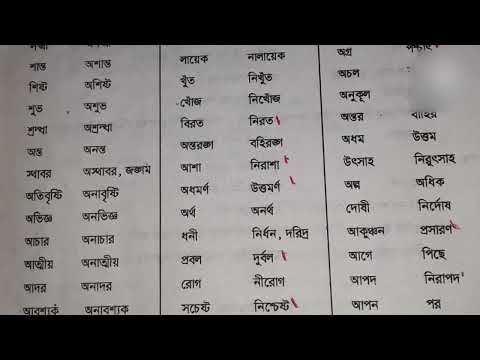 শান্ত অশান্ত
শিষ্ট অশিষ্ট
শুভ অশুভ
শ্রদ্ধা অশ্রদ্ধা
অন্ত অনন্ত
স্থাবর অস্থাবর, জঙ্গম
অতিবৃষ্টি অনাবৃষ্টি
অভিজ্ঞ অনভিজ্ঞ
আচার অনাচার
আত্মীয় অনাত্মীয়
আদর অনাদর
আবশ্যক অনাবশ্যক
লায়েক নালায়েক
খুঁত নিখুঁত
খোঁজ নিখোঁজ
বিরত নিরত
অন্তরঙ্গ বহিরঙ্গ
আশা নিরাশা
অধমর্ণ উত্তমর্ণ
অর্থ অনর্থ
ধনী নির্ধন, দরিদ্র
প্রবল দুর্বল
রোগ নীরোগ
সচেষ্ট নিশ্চেষ্ট
অগ্র পশ্চাৎ
অচল
অনুকূল
অন্তর বাহির
অধম উত্তম
উৎসাহ নিরুৎসাহ
অল্প অধিক
দোষী নির্দোষ
আকুঞ্চন প্রসারণ
আগে পিছে
আপদ নিরাপদ
আপন পর